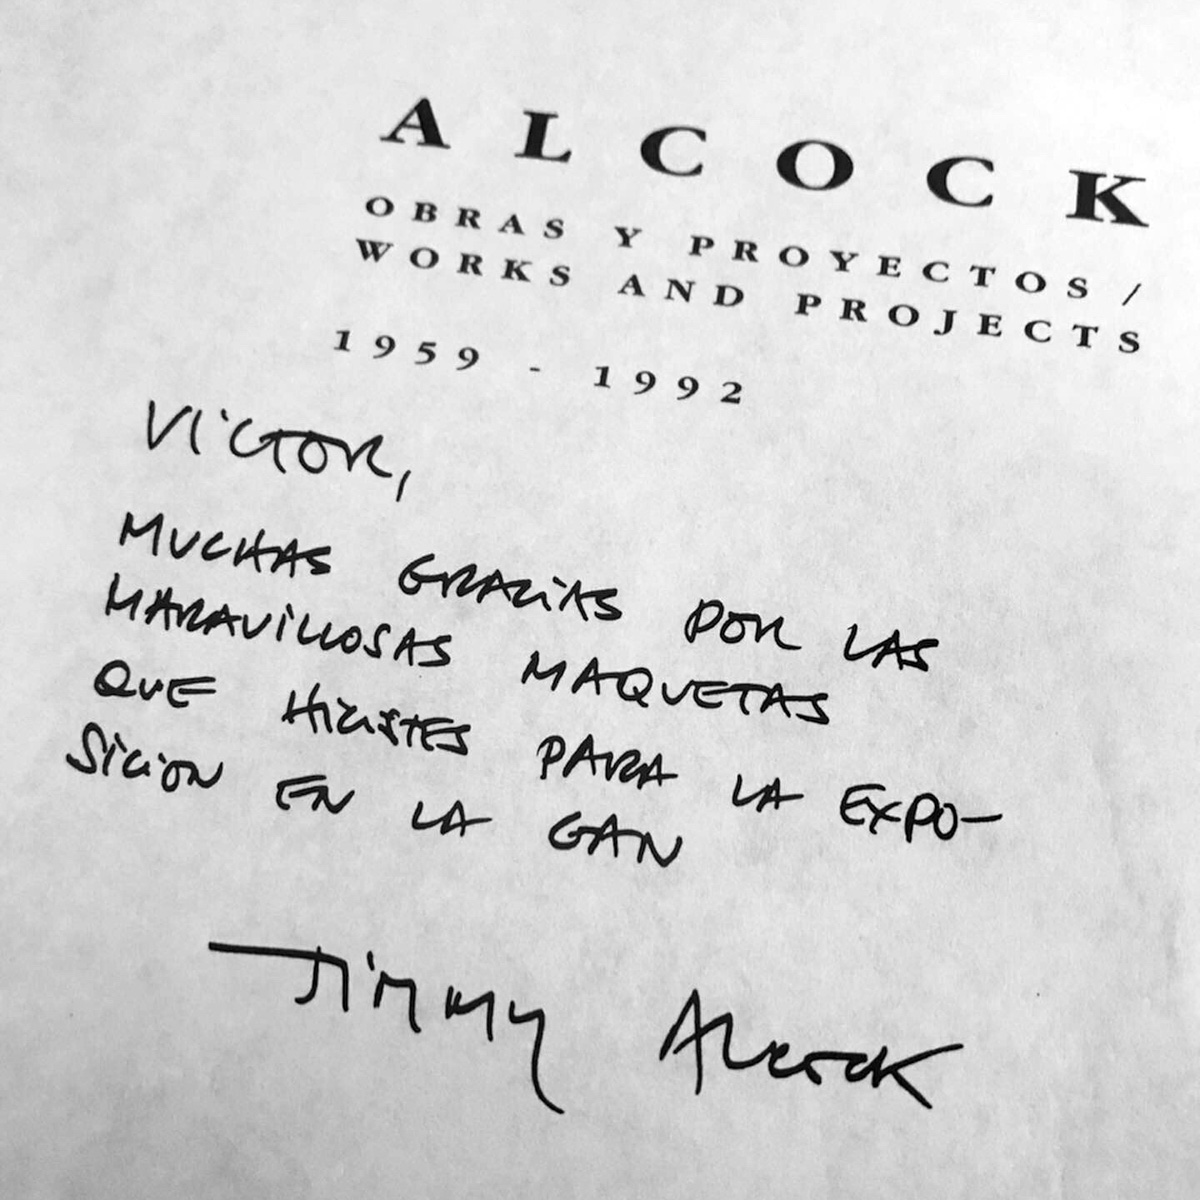 ALCOCK
OBRAS Y PROYECTOS/
WORKS AND PROJECTS
1959 - 1992
VICTOR,
MUCHAS GRACIAS POR LAS
MARAVILLOSAS MAQUETAS
QUE HICISTES PARA LA EXPO-
SICION EN LA GAN
JIMMY ALCOCK